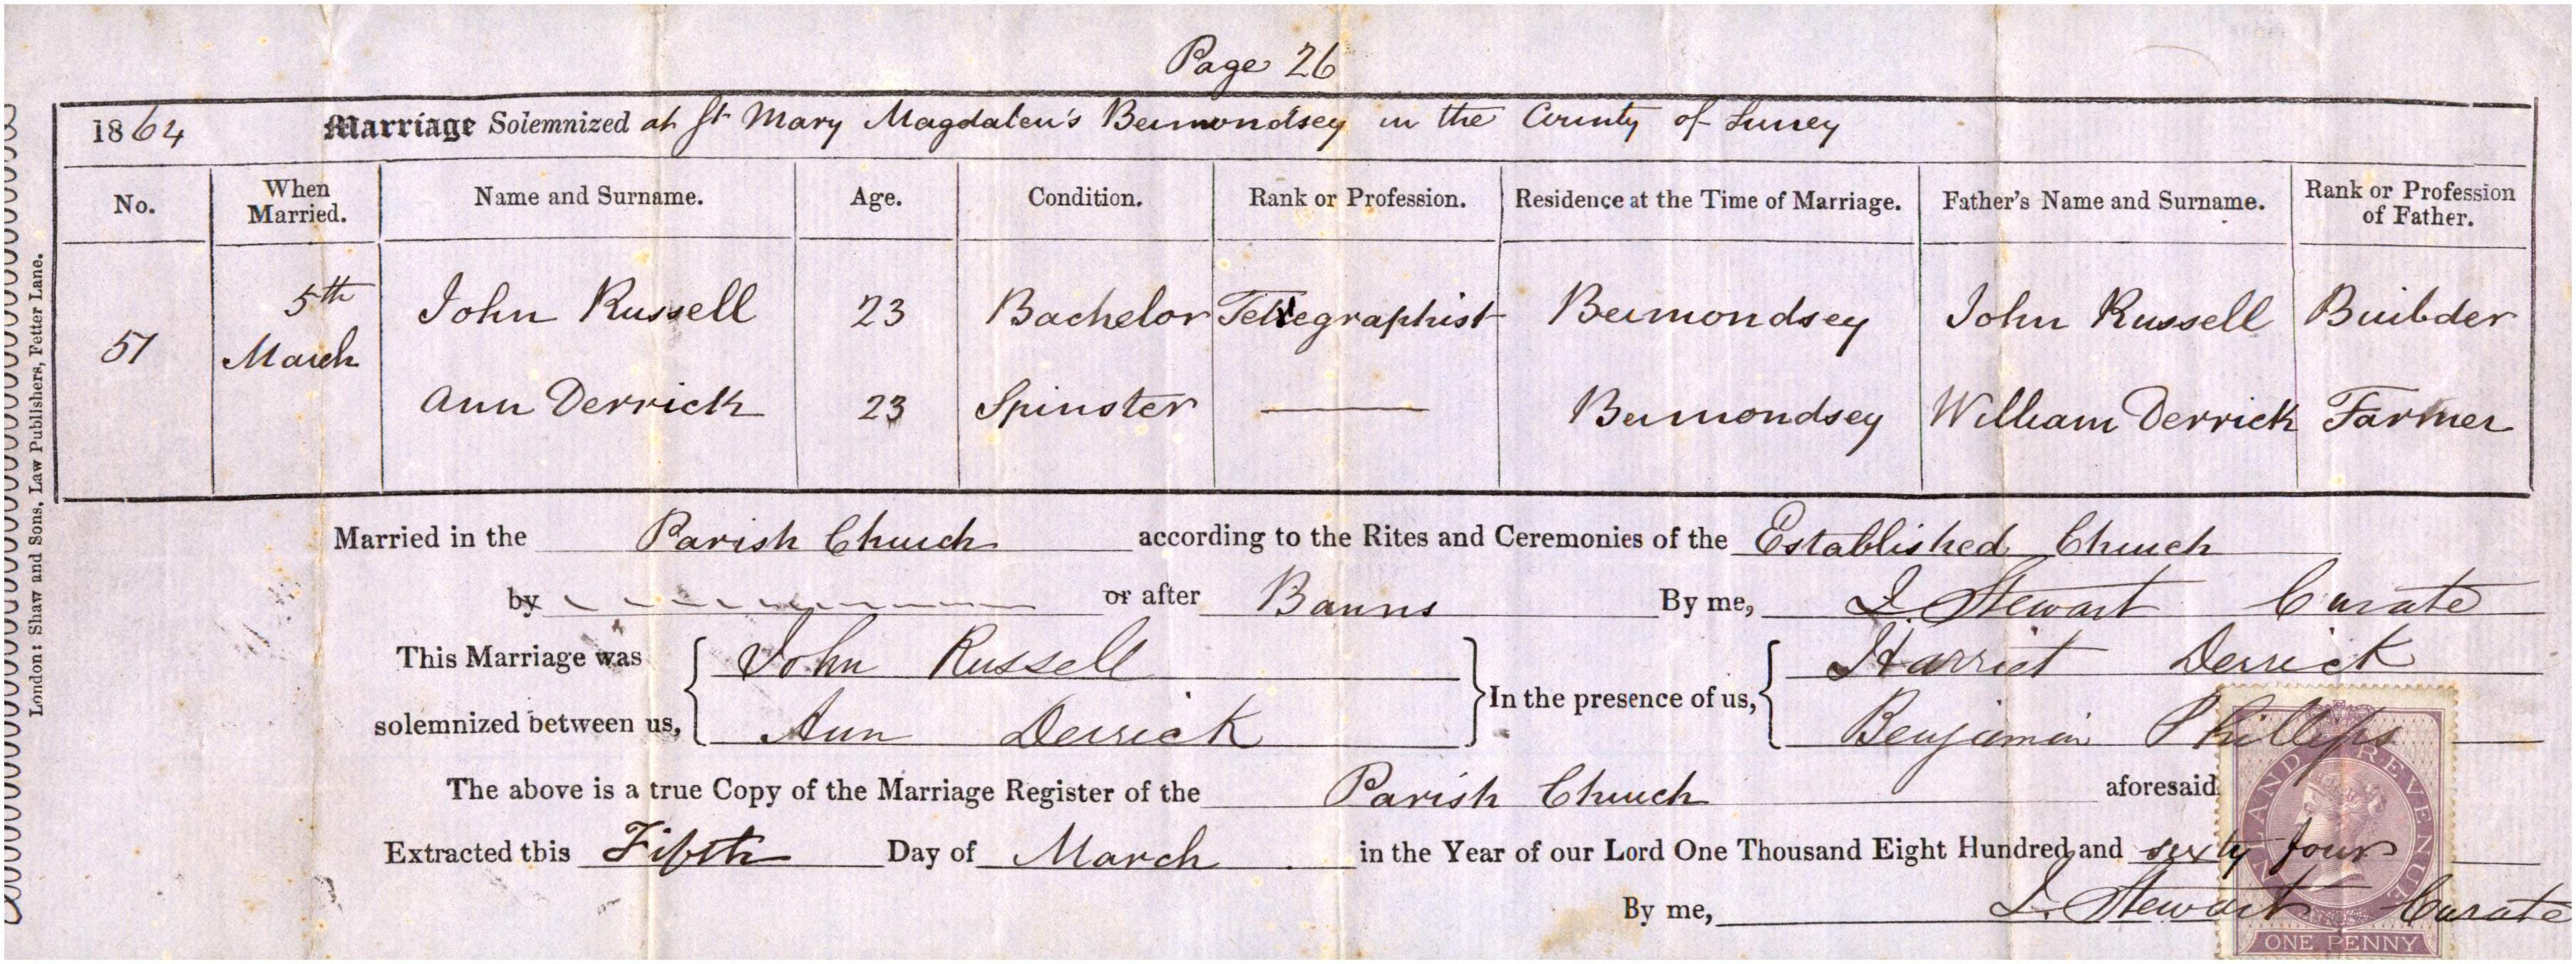 Page 26
1864 Marriage Solemnized at St Mary Magdalen's Bermondsey in the County of Surrey
No. When Married. Name and Surname. Age. Condition. Rank or Profession. Residence at the Time of Marriage. Father's Name and Surname. Rank or Profession of Father.
51 5th March John Russell 23 Bachelor Telegraphist Bermondsey John Russell Builder
Ann Derrick 23 Spinster Bermondsey William Derrick Farmer
Married in the Parish Church according to the Rites and Ceremonies of the Established Church
by or after Banns By me, J. Stewart Curate
This Marriage was solemnized between us, John Russell Ann Derrick In the presence of us, Harriet Derrick Benjamin Phillips
The above is a true Copy of the Marriage Register of the Parish Church aforesaid
Extracted this Fifth Day of March in the Year of our Lord One Thousand Eight Hundred and sixty four
By me, J. Stewart Curate
INLAND REVENUE
ONE PENNY
London: Shaw and Sons, Law Publishers, Fetter Lane.